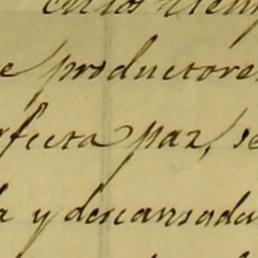 e productores
perfecta paz, se
a y descansada